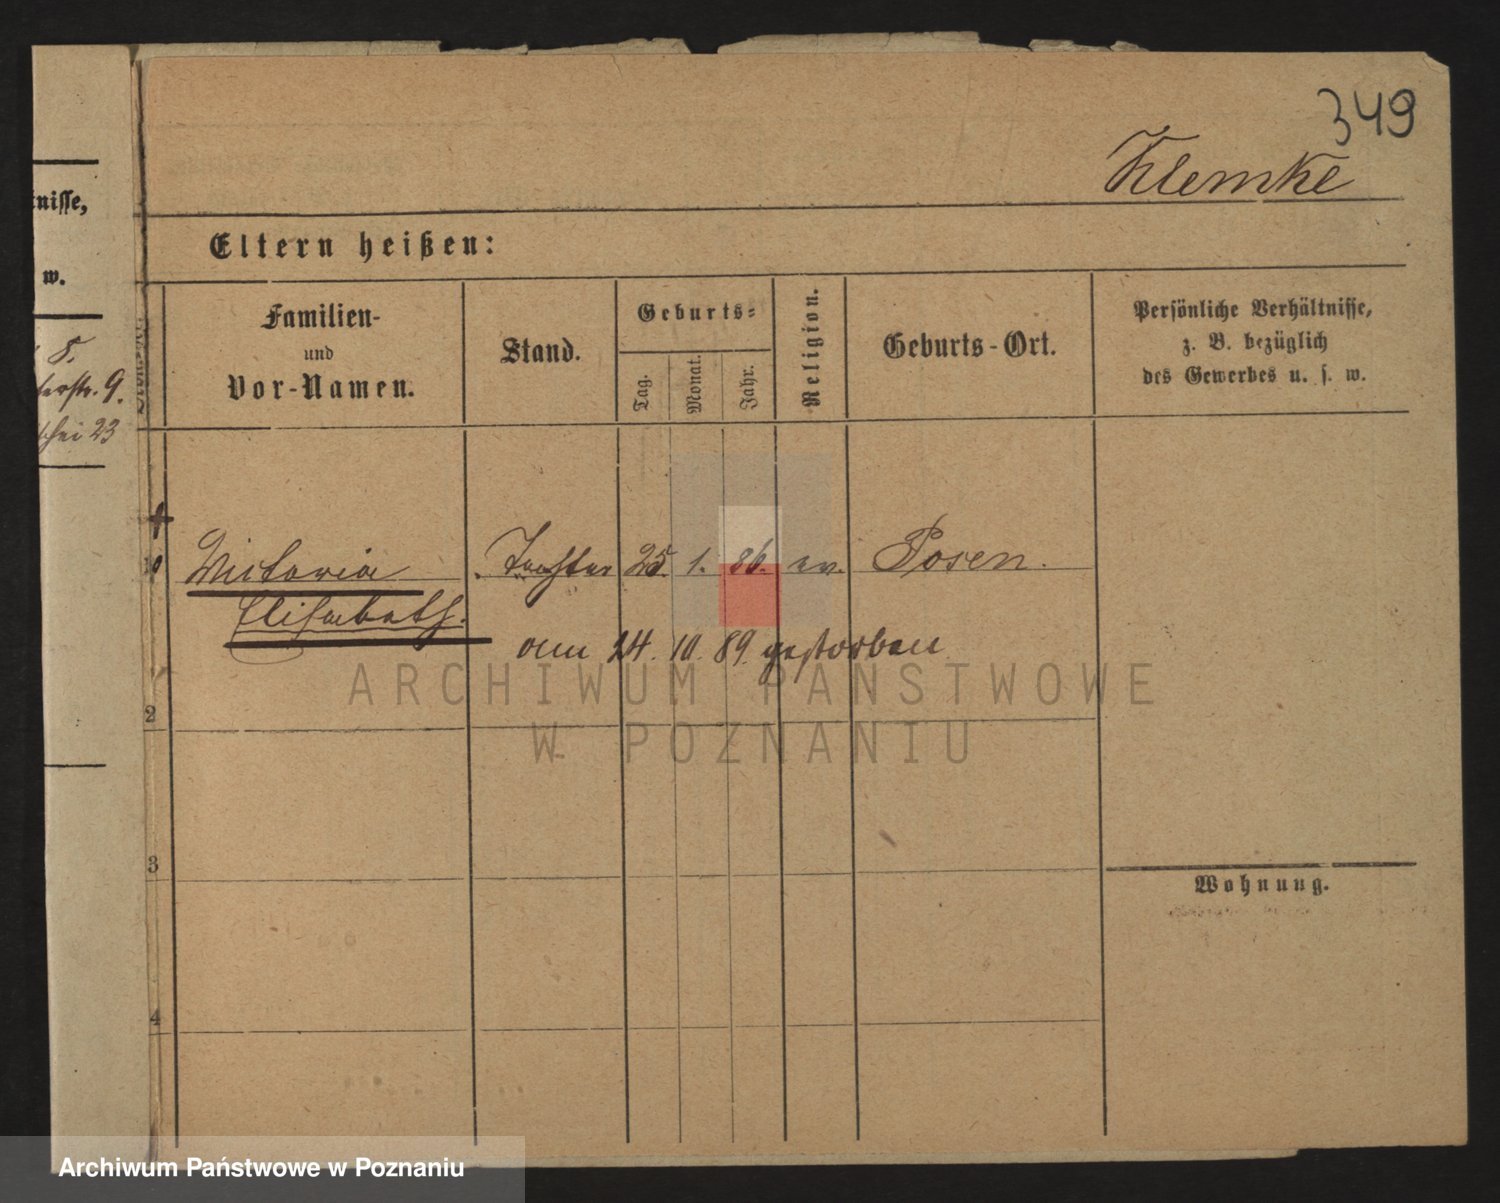 349
Klemke
tnisse,
w.
8.
9.
23
Eltern heißen:
Familien-
und
Vor-Namen.
Stand.
Geburts-
Tag.
Monat.
Jahr.
Religion.
Geburts-Ort.
Persönliche Verhältnisse,
z. B. bezüglich
des Gewerbes u. s. w.
Victoria Tochter 25. 1. 86. ev. Posen.
Elisabeth.
am 24. 10. 89. gestorben
ARCHIWUM PAŃSTWOWE
W POZNANIU
2
3
Wohnung.
4
Archiwum Państwowe w Poznaniu